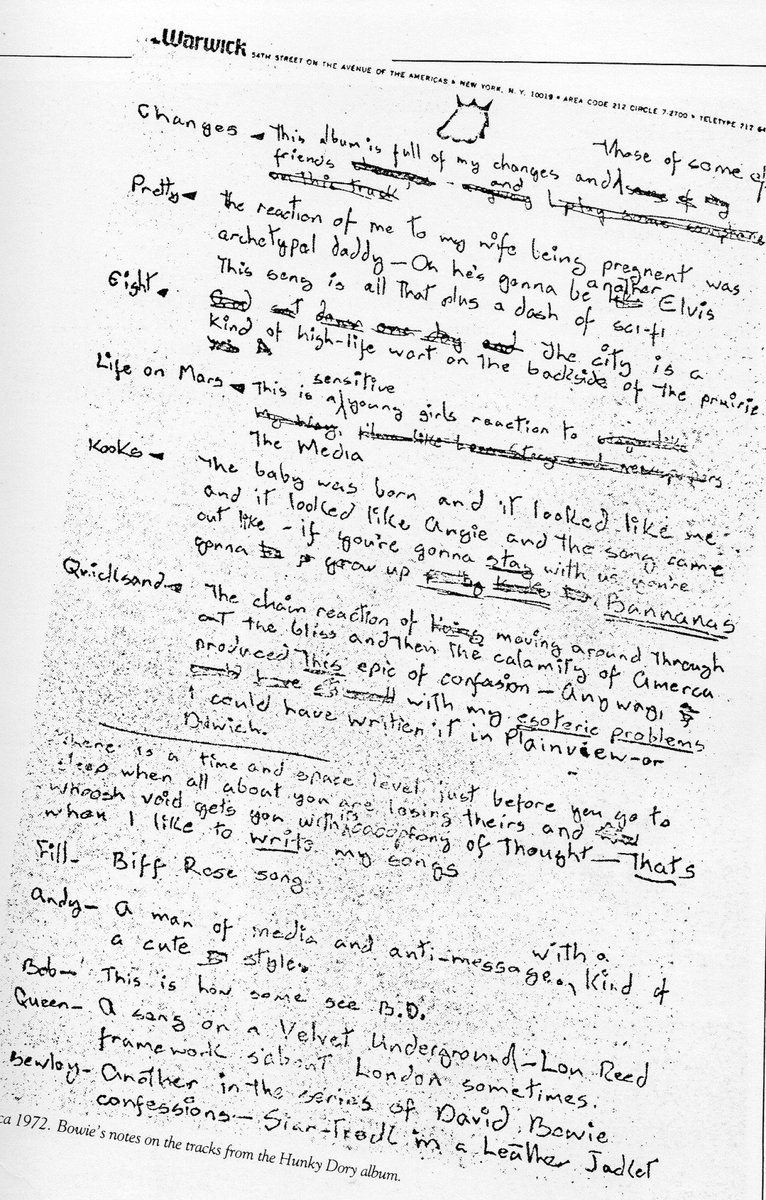 Warwick
54TH STREET ON THE AVENUE OF THE AMERICAS • NEW YORK, N. Y. 10019 • AREA CODE 212 CIRCLE 7-2700 • TELETYPE 212 64
Changes - This album is full of my changes and those of some of
friends
on this track and I play some
Pretty - the reaction of me to my wife being pregnent was
archetypal daddy - Oh he's gonna be another Elvis
This song is all that plus a dash of sci-fi
Eight - God sat down one day and The city is a
kind of high-life wart on the backside of the prairie
Life on Mars - This is a sensitive young girls reaction to
The Media
Kooks - The baby was born and it looked like me
and it looked like Angie and the song came
out like - if you're gonna stay with us you're
gonna grow up Bannanas
Quicksand - The chain reaction of moving around through
out the bliss and then the calamity of America
produced This epic of confusion - Anyway,
with my esoteric problems
i could have written it in Plainview - or
Dulwich.
There is a time and space level just before you go to
sleep when all about you are losing theirs and
whoosh void gets you with its cacophony of thought - That's
when I like to write my songs
Fill - Biff Rose song
Andy - A man of media and anti-message, with a kind of
a cute style.
Bob - This is how some see B.D.
Queen - A song on a Velvet Underground - Lou Reed
framework s'about London sometimes.
Bewlay - Another in the series of David Bowie
confessions - Star-Trek in a Leather Jacket
ca 1972. Bowie's notes on the tracks from the Hunky Dory album.